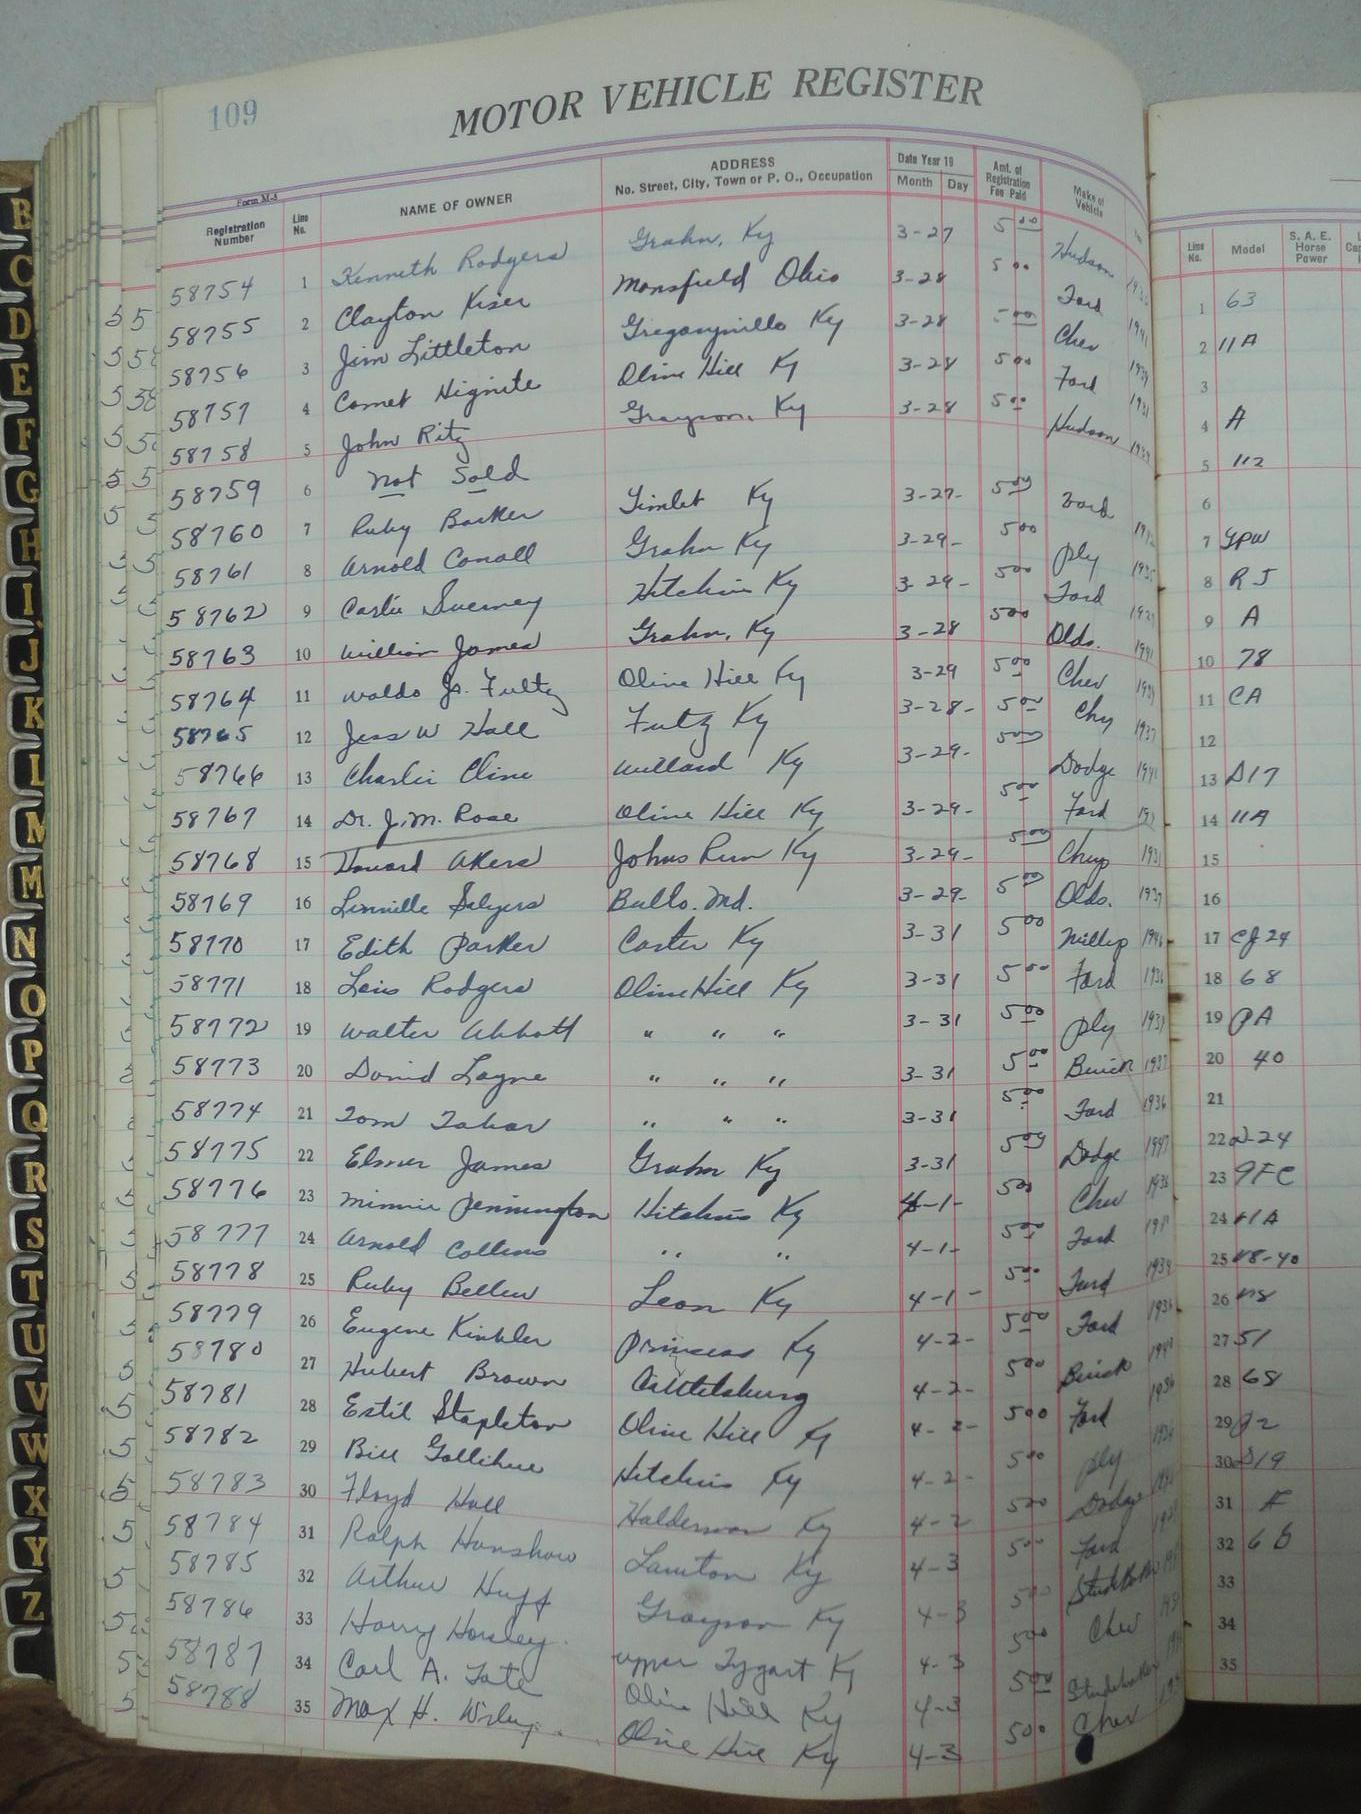 109
MOTOR VEHICLE REGISTER
Form M-5
Registration Number Line No. NAME OF OWNER ADDRESS No. Street, City, Town or P. O., Occupation Date Year 19 Month Day Amt. of Registration Fee Paid Make of Vehicle
Line No. Model S. A. E. Horse Power
58754 1 Kenneth Rodgers Grahn, Ky 3-27 5 00 Hudson 63
58755 2 Clayton Kiser Mansfield Ohio 3-28 5 00 Ford 1941 11A
58756 3 Jim Littleton Ky 3-28 5 00 Chev 1939
58757 4 Comet Hignite Olive Hill Ky 3-28 5 00 Ford 1931 A
58758 5 John Ritz Grayson, Ky 3-28 5 00 Hudson 112
58759 6 Not Sold
58760 7 Ruby Barker Ky 3-27- 5 00 Ford GPW
58761 8 Arnold Grahn Ky 3-29- 5 00 Ply 1935 R J
58762 9 Hitchins Ky 3-29- 5 00 Ford A
58763 10 William James Grahn, Ky 3-28 5 00 Olds. 1941 78
58764 11 Waldo Jr. Fultz Olive Hill Ky 3-29 5 00 Chev CA
58765 12 Jess W Hall Ky 3-28- 5 00 Chy 1937
58766 13 Charlie Cline Willard Ky 3-29- 5 00 Dodge 1941 D17
58767 14 Dr. J. M. Rose Olive Hill Ky 3-29- 5 00 Ford 11A
58768 15 Howard Akers Johns Run Ky 3-29- 5 00 Chev 1931
58769 16 Linville Salyers Balto. Md. 3-29- 5 00 Olds. 1937
58770 17 Edith Parker Carter Ky 3-31 5 00 Willys 1946 CJ 24
58771 18 Lois Rodgers Olive Hill Ky 3-31 5 00 Ford 1936 68
58772 19 Walter Abbott " " " 3-31 5 00 Ply PA
58773 20 David Layne " " " 3-31 5 00 Buick 1937 40
58774 21 Tom Tabor " " " 3-31 5 00 Ford 1936
58775 22 Elmer James Grahn Ky 3-31 5 00 Dodge 1947 D-24
58776 23 Minnie Pennington Hitchins Ky 4-1- 5 00 Chev 1936 9FC
58777 24 Arnold Collins " " 4-1- 5 00 Ford 11A
58778 25 Ruby Bellew Leon Ky 4-1- 5 00 Ford 1934 V8-40
58779 26 Eugene Ky 4-2- 5 00 Ford 1936 V8
58780 27 Hubert Brown Catlettsburg 4-2- 5 00 Buick 51
58781 28 Estil Stapleton Olive Hill Ky 4-2- 5 00 Ford 1936 68
58782 29 Bill Gollihue Hitchins Ky 4-2- 5 00 Ply P2
58783 30 Floyd Hall Haldeman Ky 4-2 5 00 Dodge D19
58784 31 Ralph Hanshaw Lawton Ky 4-3 5 00 Ford A
58785 32 Arthur Huff Grayson Ky 4-3 5 00 Studebaker 6 B
58786 33 Harry Horsley Upper Tygart Ky 4-3 5 00 Chev
58787 34 Carl A. Tate Olive Hill Ky 4-3 5 00 Studebaker
58788 35 Max H. Olive Hill Ky 4-3 5 00 Chev
B
C
D
E
F
G
H
I
J
K
L
M
M
N
O
P
Q
R
S
T
U
V
W
X
Y
Z